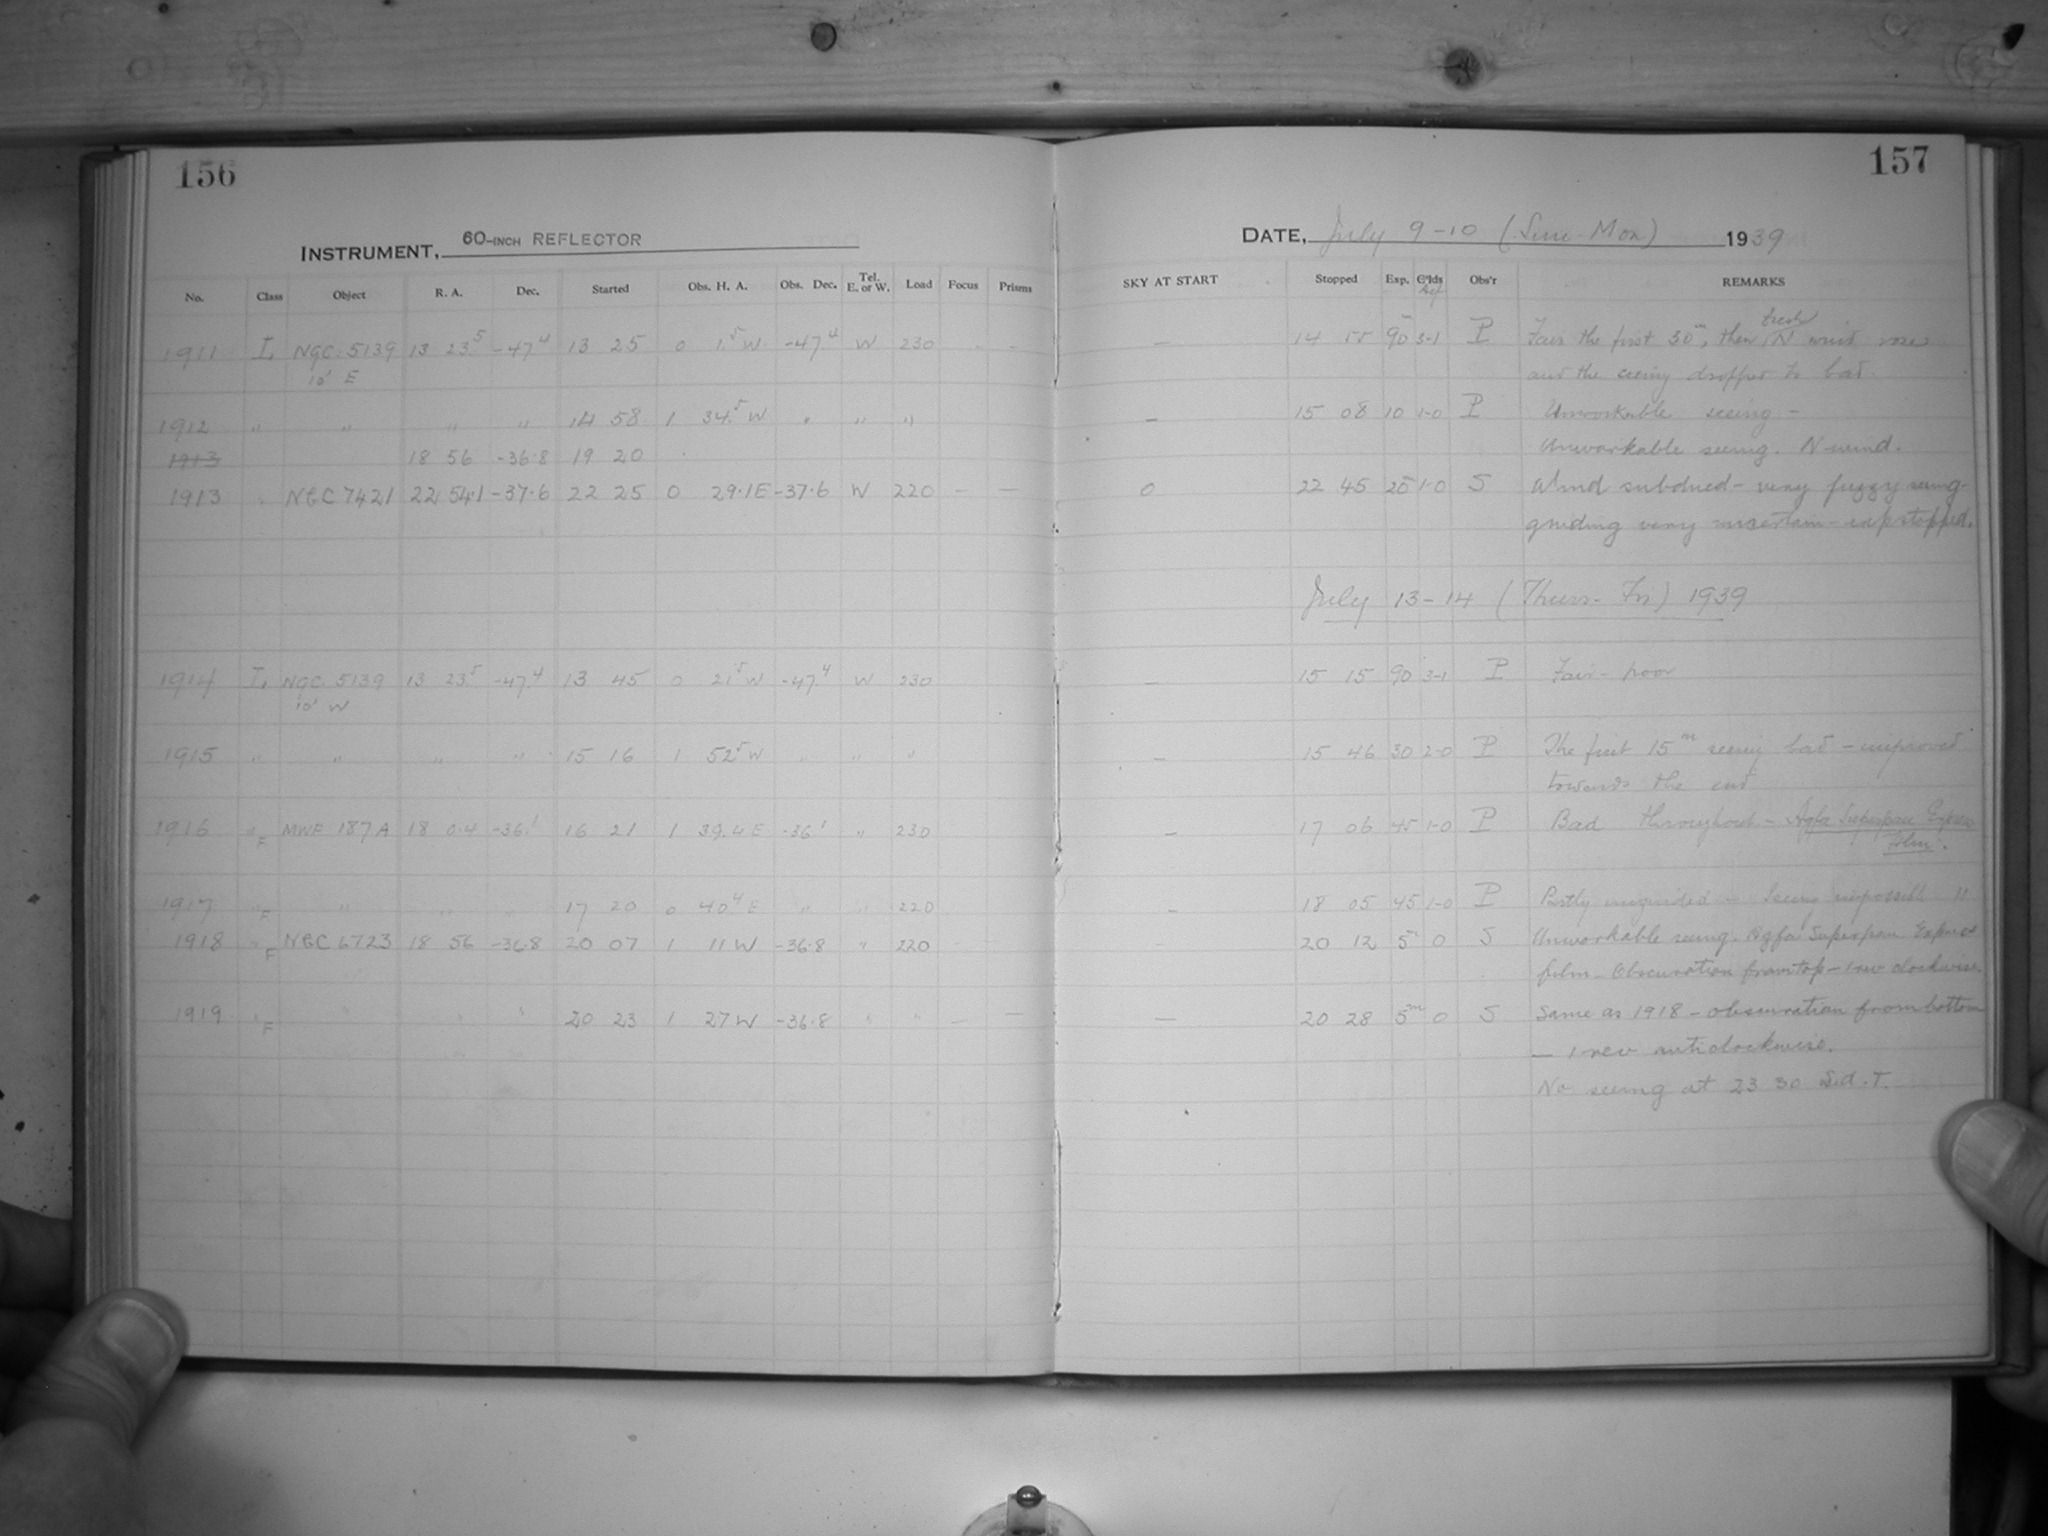 156
157
INSTRUMENT, 60-INCH REFLECTOR
DATE, July 9-10 (Sun-Mon) 1939
No. Class Object R. A. Dec. Started Obs. H. A. Obs. Dec. Tel. E. or W. Load Focus Prisms SKY AT START Stopped Exp. G'lds Obs'r REMARKS
1911 L NGC. 5139 13 23.5 -47.4 13 25 0 1.5 W -47.4 W 230 - - — 14 55 90m 3-1 P Fair the first 30m, then fresh N wind rose
10' E and the seeing dropped to bad.
1912 " " " " 14 58 1 34.5 W " " " — 15 08 10 1-0 P Unworkable seeing -
1913 18 56 -36.8 19 20 Unworkable seeing. N wind.
1913 " NGC 7421 22 54.1 -37.6 22 25 0 29.1 E -37.6 W 220 - — 0 22 45 20 1-0 S Wind subdued - very fuzzy seeing -
guiding very uncertain - exp stopped.
July 13-14 (Thurs-Fri) 1939
1914 L NGC. 5139 13 23.5 -47.4 13 45 0 21.5 W -47.4 W 230 — 15 15 90 3-1 P Fair - poor
10' W
1915 " " " " 15 16 1 52.5 W " " " — 15 46 30 2-0 P The first 15m seeing bad - improved
towards the end
1916 " F MWF 187A 18 0.4 -36.1 16 21 1 39.4 E -36.1 " 230 — 17 06 45 1-0 P Bad throughout - Agfa Superpan Express
Film.
1917 " F " " " 17 20 0 40.4 E " " 220 — 18 05 45 1-0 P Partly unguided - Seeing impossible "
1918 " F NGC 6723 18 56 -36.8 20 07 1 11 W -36.8 " 220 - 20 12 5m 0 S Unworkable seeing. Agfa Superpan Express
film - Obscuration from top - 1 rev clockwise.
1919 " F " " " 20 23 1 27 W -36.8 " " — — — 20 28 5m 0 S Same as 1918 - obscuration from bottom
— 1 rev anticlockwise.
No seeing at 23 30 Sid. T.